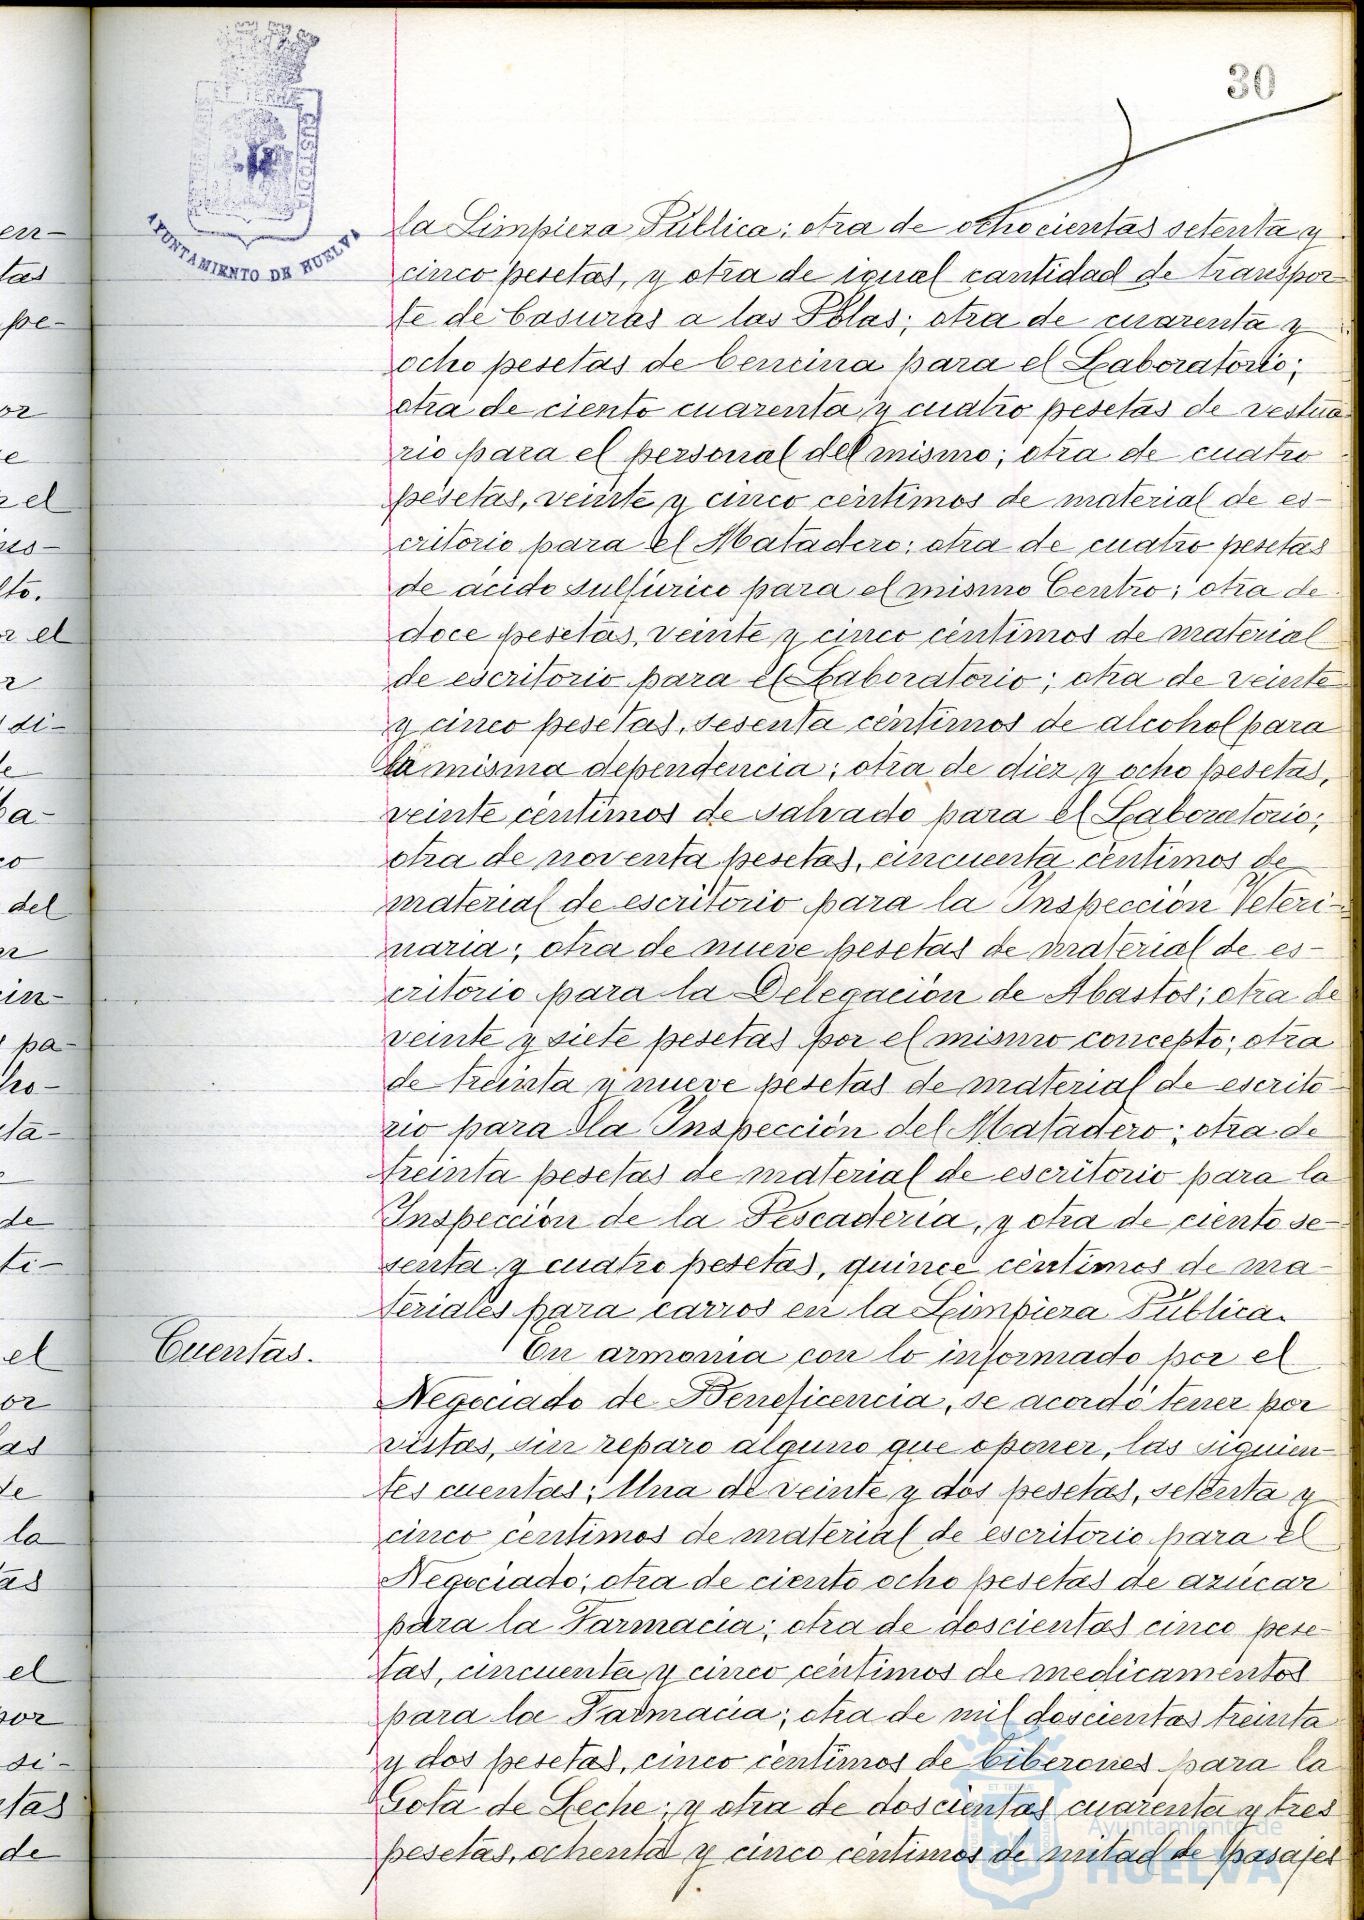 30
ET TERRÆ
CUSTODIA
AYUNTAMIENTO DE HUELVA
la Limpieza Pública; otra de ochocientas setenta y
cinco pesetas, y otra de igual cantidad de transpor-
te de basuras a las Polas; otra de cuarenta y
ocho pesetas de bencina para el Laboratorio;
otra de ciento cuarenta y cuatro pesetas de vestua-
rio para el personal del mismo; otra de cuatro
pesetas, veinte y cinco céntimos de material de es-
critorio para el Matadero; otra de cuatro pesetas
de ácido sulfúrico para el mismo Centro; otra de
doce pesetas, veinte y cinco céntimos de material
de escritorio para el Laboratorio; otra de veinte
y cinco pesetas, sesenta céntimos de alcohol para
la misma dependencia; otra de diez y ocho pesetas,
veinte céntimos de salvado para el Laboratorio;
otra de noventa pesetas, cincuenta céntimos de
material de escritorio para la Inspección Veteri-
naria; otra de nueve pesetas de material de es-
critorio para la Delegación de Abastos; otra de
veinte y siete pesetas por el mismo concepto; otra
de treinta y nueve pesetas de material de escrito-
rio para la Inspección del Matadero; otra de
treinta pesetas de material de escritorio para la
Inspección de la Pescadería, y otra de ciento se-
senta y cuatro pesetas, quince céntimos de ma-
teriales para carros en la Limpieza Pública.
Cuentas. En armonía con lo informado por el
Negociado de Beneficencia, se acordó tener por
vistas, sin reparo alguno que oponer, las siguien-
tes cuentas: Una de veinte y dos pesetas, setenta y
cinco céntimos de material de escritorio para el
Negociado; otra de ciento ocho pesetas de azúcar
para la Farmacia; otra de doscientas cinco pese-
tas, cincuenta y cinco céntimos de medicamentos
para la Farmacia; otra de mil doscientas treinta
y dos pesetas, cinco céntimos de biberones para la
Gota de Leche; y otra de doscientas cuarenta y tres
pesetas, ochenta y cinco céntimos de mitad de pasajes
Ayuntamiento de
HUELVA